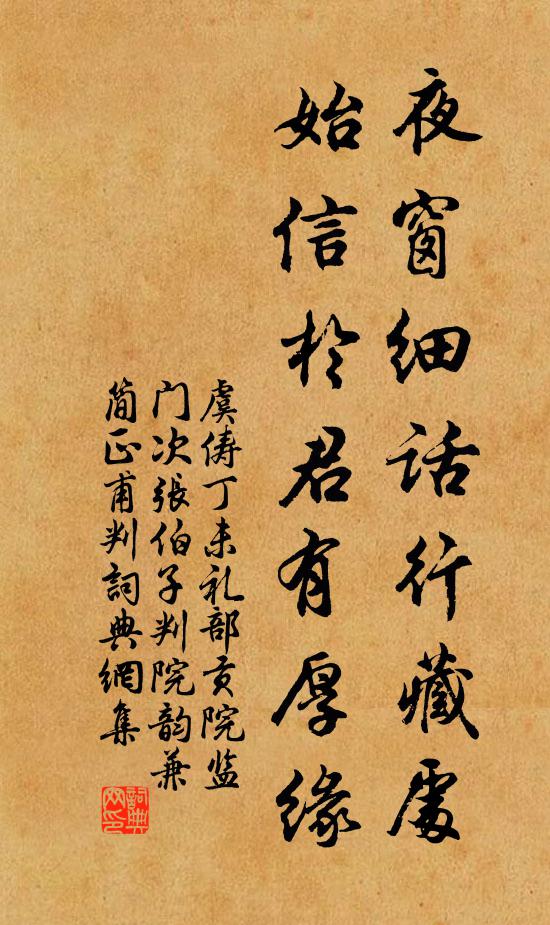 夜窗细话行藏處
始信於君有厚缘
虞俦丁未礼部贡院监
门次張伯子判院韵兼
简正甫判詞典網集
詞典网印